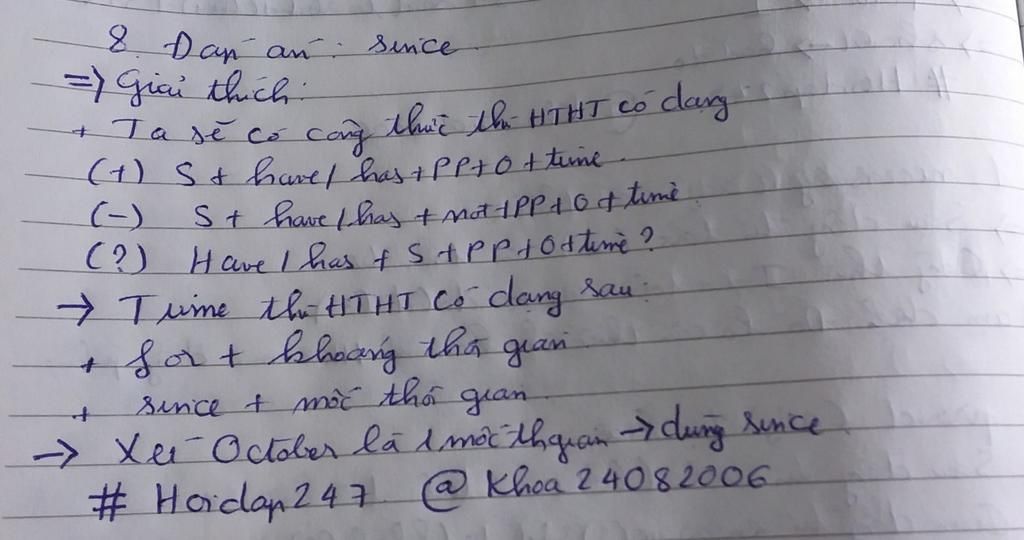 8. Đáp án: since
=> Giải thích:
+ Ta sẽ có công thức thì HTHT có dạng
(+) S + have / has + PP + O + time.
(-) S + have / has + not + PP + O + time
(?) Have / has + S + PP + O + time ?
→ Time thì HTHT có dạng sau:
+ for + khoảng thời gian
+ since + mốc thời gian
→ Xét October là 1 mốc th gian → dùng since
# Hoidap247 @ Khoa24082006